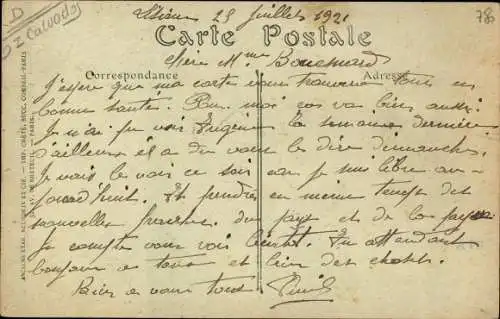 D
Calvados
Lisieux 25 Juillet 1921
78
Carte Postale
Chère Mme Bouchnard
Correspondance
Adresse
J'espère que ma carte vous trouvera tous en
bonne santé. Pour moi ça va bien aussi.
Je n'ai pu voir Eugène la semaine dernière
d'ailleurs il a dû vous le dire dimanche.
Je vais le voir ce soir car je suis libre au-
jourd'hui. Et prendrai en même temps des
nouvelles fraîches du pays et de la
Je compte vous voir bientôt. En attendant
bonjour à tous et bien des choses.
Bien à vous tous
ANCIENS ETAB. NEURDEIN ET CIE. - IMP. CRÉTÉ, SUCC. CORBEIL-PARIS
PARIS